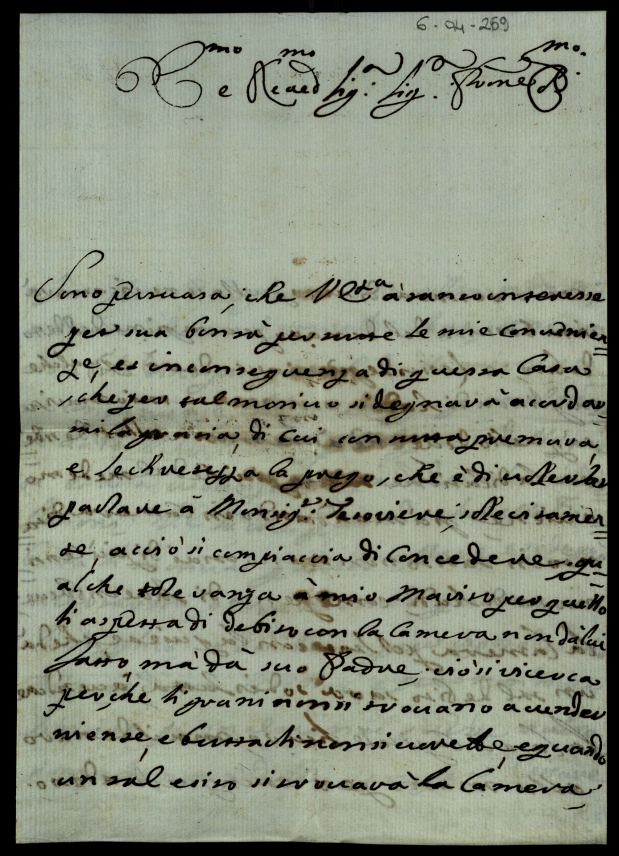 6-04-259
Sono persuasa, che V Ecza à tanto interesse
per sua bontà per tutte le mie convenien=
ze, et in conseguenza di questa Casa
, che per tal motivo si degnarà acordar
mi la grazia, di cui con tutta premura,
e la prego, che è di voler
parlare à Monsigr. Tesoriere, sollecitamen=
te, acciò si compiaccia di Concedere qu
alche toleranza à mio Marito per quello
li aspetta di debito con la Camera non dà lui
fatto, mà dà suo Padre, ciò si ricerca
perche li grani non si trovano a vender
niente, e buttarli non si vorebbe, e quando
un tal esito si trovarà la Camera,